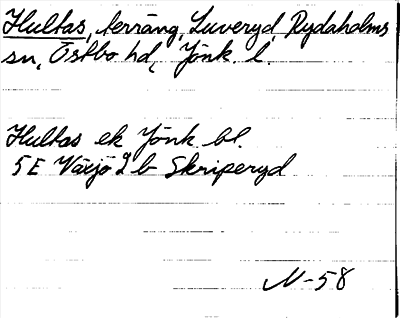 Hultas, terräng, Luveryd, Rydaholms
sn, Östbo hd, Jönk. l.
Hultas ek Jönk. bl.
5E Växjö 2 b Skriperyd
N-58